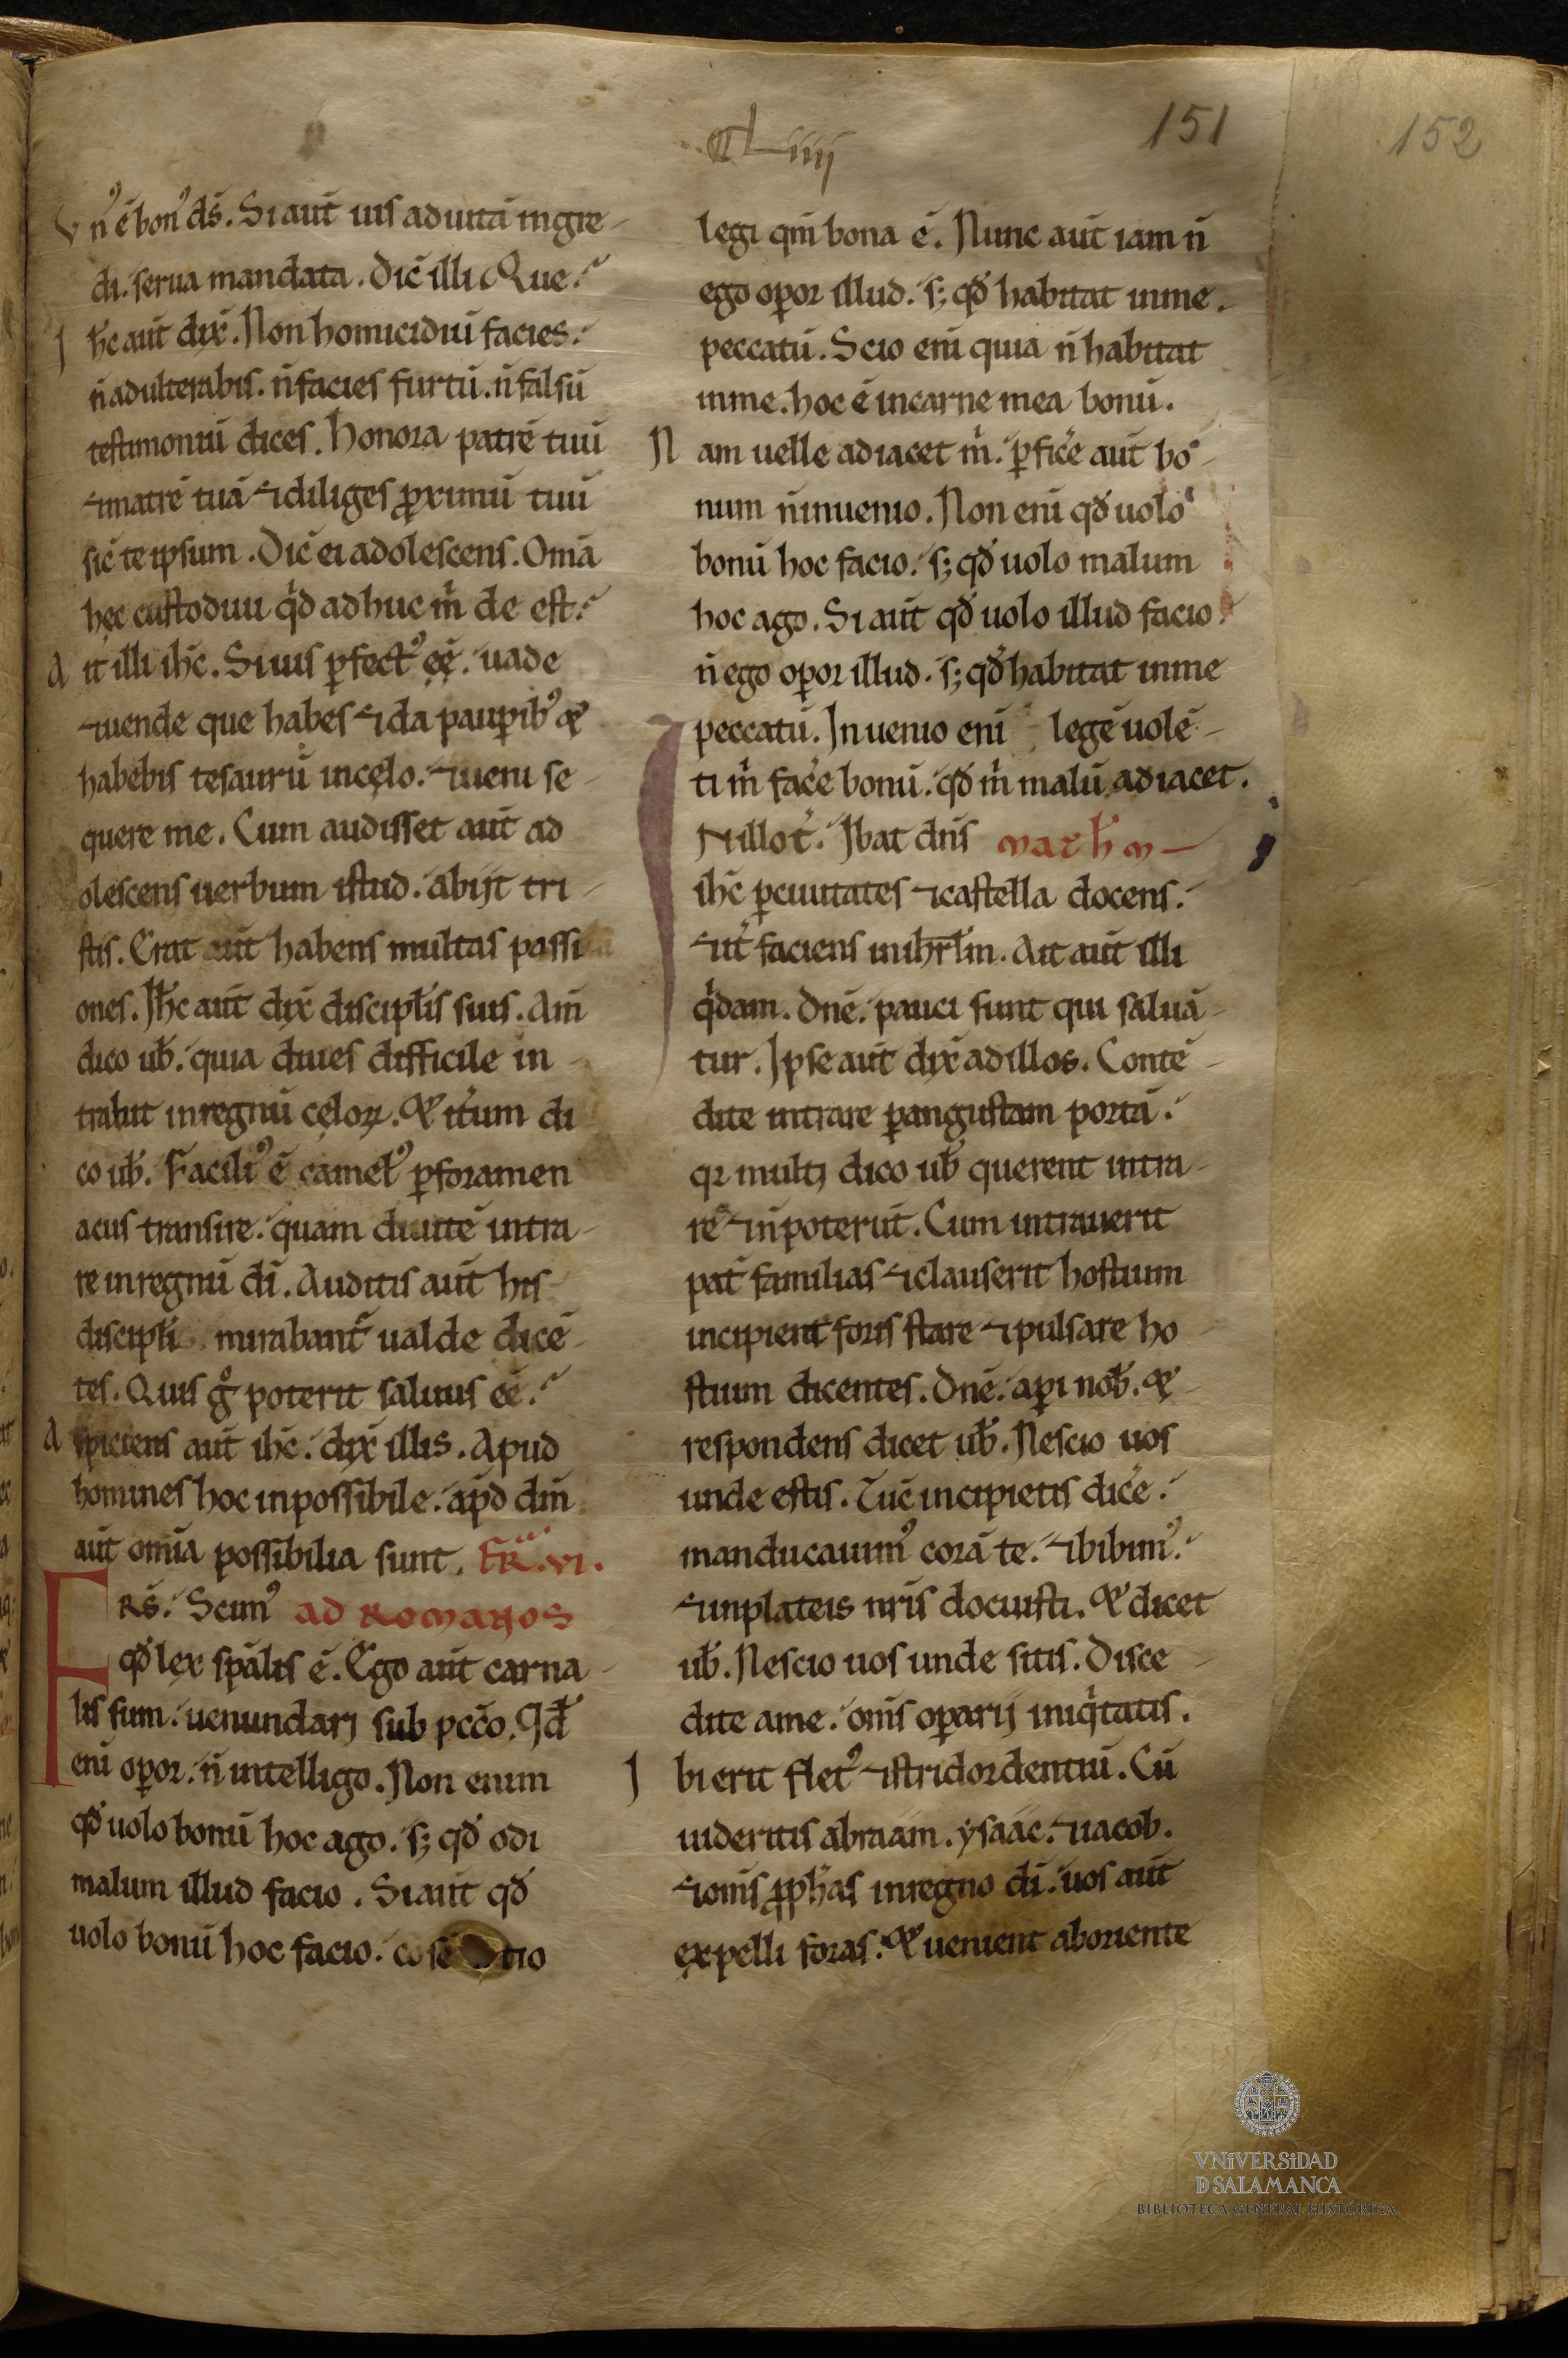 cLiiii
151
152
Vn᷒ ē bon᷒ ds̄. Si aut̄ uis ad uitā ingre-
di. serua mandata. Dic̄ illi Que?
Ih̄c aut̄ dix̄. Non homicidiū facies.
n̄ adulterabis. n̄ facies furtū. n̄ falsū
testimoniū dices. Honora patrē tuū
⁊ matrē tuā ⁊ diliges ꝓximū tuū
sic̄ te ipsum. Dic̄ ei adolescens. Om̄a
hęc custodiui qͥd adhuc m̄ de est?
Ait illi ih̄c. Si uis ꝑfect᷒ eē. uade
⁊ uende que habes ⁊ da pauꝑib᷒ &
habebis tesaurū in cęlo. ⁊ ueni se-
quere me. Cum audisset aut̄ ad
olescens uerbum istud. abijt tri-
stis. Erat aut̄ habens multas passi
ones. Ih̄c aut̄ dix̄ discipl̄is suis. Am̄
dico ub̄. quia diues difficile in-
trabit in regnū cęloꝝ. & it̄um di
co ub̄. Facili᷒ ē camel᷒ ꝑ foramen
acus transire. quam diuitē intra-
re in regnū dī. Auditis aut̄ his
discipl̄i mirabant̄ ualde dicē-
tes. Quis gͦ poterit saluus eē?
Aspiciens aut̄ ih̄c. dix̄ illis. Apud
homines hoc inpossibile. apd̄ dm̄
aut̄ om̄ia possibilia sunt. FR. VI.
FRS̄. Scim᷒ AD ROMANOS
qd̄ lex spālis ē. Ego aut̄ carna-
lis sum. uenundatj sub pcc̄o. Qd̄
eni oꝑor. n̄ intelligo. Non enim
qd̄ uolo bonū hoc ago. s; qd̄ odi
malum illud facio. Si aut̄ qd̄
uolo bonū hoc facio. cōsētio
legi qm̄ bona ē. Nunc aut̄ iam n̄
ego oꝑor illud. s; qd̄ habitat in me.
peccatū. Scio eni quia n̄ habitat
in me. hoc ē in carne mea bonū.
Nam uelle adiacet m̄. ꝑfic̄e aut̄ bo-
num n̄ inuenio. Non eni qd̄ uolo
bonū hoc facio. s; qd̄ uolo malum
hoc ago. Si aut̄ qd̄ uolo illud facio
n̄ ego oꝑor illud. s; qd̄ habitat in me
peccatū. Inuenio eni legē uolē-
ti m̄ fac̄e bonū. qd̄ m̄ malū adiacet.
IN illo t̄. Ibat dn̄s MATH̄M
ih̄c ꝑ ciuitates ⁊ castella docens.
⁊ it̄ faciens in ihrl̄m. Ait aut̄ illi
qͥdam. Dn̄e. pauci sunt qui saluā-
tur. Ipse aut̄ dix̄ ad illos. Contē-
dite intrare ꝑ angustam portā.
qꝛ multj dico ub̄ querent intra-
re ⁊ n̄ poterūt. Cum intrauerit
pat̄ familias ⁊ clauserit hostium
incipient foris stare ⁊ pulsare ho-
stium dicentes. Dn̄e. aꝑi nob̄. &
respondens dicet ub̄. Nescio uos
unde estis. Tūc incipietis dic̄e.
manducauim᷒ corā te. ⁊ bibim᷒.
⁊ in plateis nr̄is docuisti. & dicet
ub̄. Nescio uos unde sitis. Disce-
dite a me. om̄s oꝑarij iniqͥtatis.
Ibi erit flet᷒ ⁊ stridor dentiū. Cū
uideritis abraam. ysaac. ⁊ iacob.
⁊ om̄s ꝓph̄as in regno dī. uos aut̄
expelli foras. & uenient ab oriente
VNiVERSiDAD
D SALAMANCA
BIBLIOTECA GENERAL HISTÓRICA